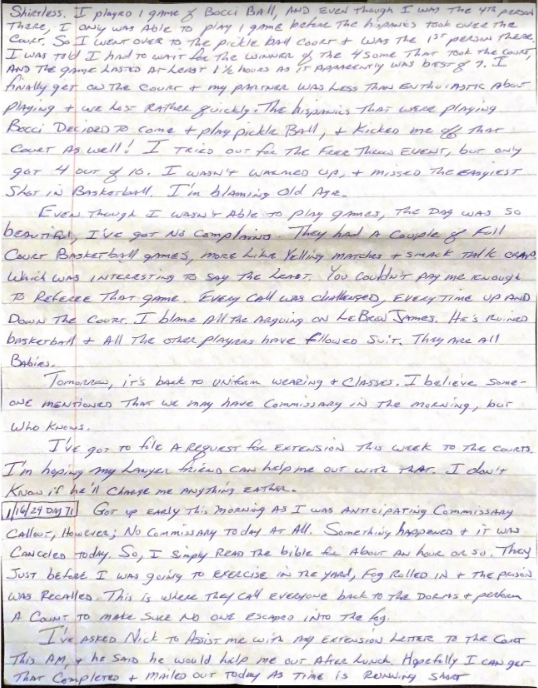 Shirtless. I played 1 game of Bocci Ball, and even though I was the 4th person
there, I only was able to play 1 game before the hispanics took over the
court. So I went over to the pickle ball court + was the 1st person there.
I was told I had to wait for the winner of the 4 some that took the court,
and the game lasted at least 1 1/2 hours as it apparently was best of 7. I
finally get on the court + my partner was less than enthusiastic about
playing + we lost rather quickly. The hispanics that were playing
Bocci decided to come + play pickle Ball, + kicked me off that
court as well! I tried out for the Free Throw Event, but only
got 4 out of 10. I wasn't warmed up, + missed the easyiest
shot in Basketball. I'm blaming old age.
Even though I wasn't able to play games, the day was so
beautiful, I've got no complaints. They had a couple of Full
Court Basketball games, more like yelling matches + smack talk
which was interesting to say the least. You couldn't pay me enough
to referee that game. Every call was challenged, every time up and
down the court. I blame all the arguing on LeBron James. He's ruined
basketball + all the other players have followed suit. They are all
Babies.
Tomorrow, it's back to uniform wearing + classes. I believe some-
one mentioned that we may have commissary in the morning, but
who knows.
I've got to file a request for extension this week to the courts.
I'm hoping my lawyer friend can help me out with that. I don't
know if he'll charge me anything eather.
1/16/24 Day 71 Got up early this morning as I was anticipating commissary
callout, However; no commissary today at all. Something happened + it was
canceled today. So, I simply read the bible for about an hour or so. They
Just before I was going to exercise in the yard, Fog rolled in + the prison
was recalled. This is where they call everyone back to the dorms + perform
a count to make sure no one escaped into the fog.
I've asked Nick to assist me with my extension letter to the court
this AM, + he said he would help me out after lunch. Hopefully I can get
that completed + mailed out today as time is running short